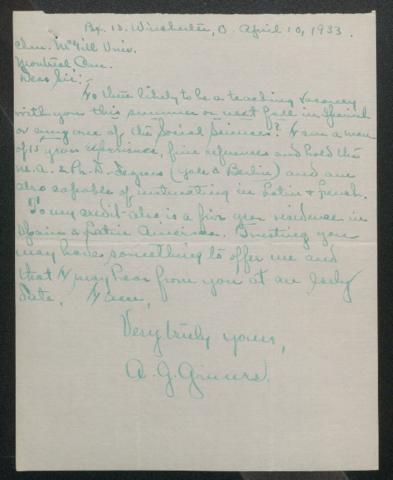 Bx. 13. Winchester, O. April 10, 1933.
Chm. McGill Univ.
Montreal Can.
Dear Sir:
Is there likely to be a teaching vacancy
with you this summer or next fall in Spanish
or any one of the Social Sciences? I am a man
of 15 years experience, fine references and hold the
M.A. & Ph.D. degrees (Yale & Berlin) and am
also capable of instructing in Latin & French.
To my credit also, is a five year residence in
Spain & Latin America. Trusting you
may have something to offer me and
that I may hear from you at an early
date, I am,
Very truly yours,
A. G.